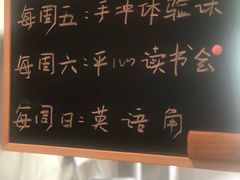 每周五:手冲体验课
每周六:平心读书会
每周日:英语角